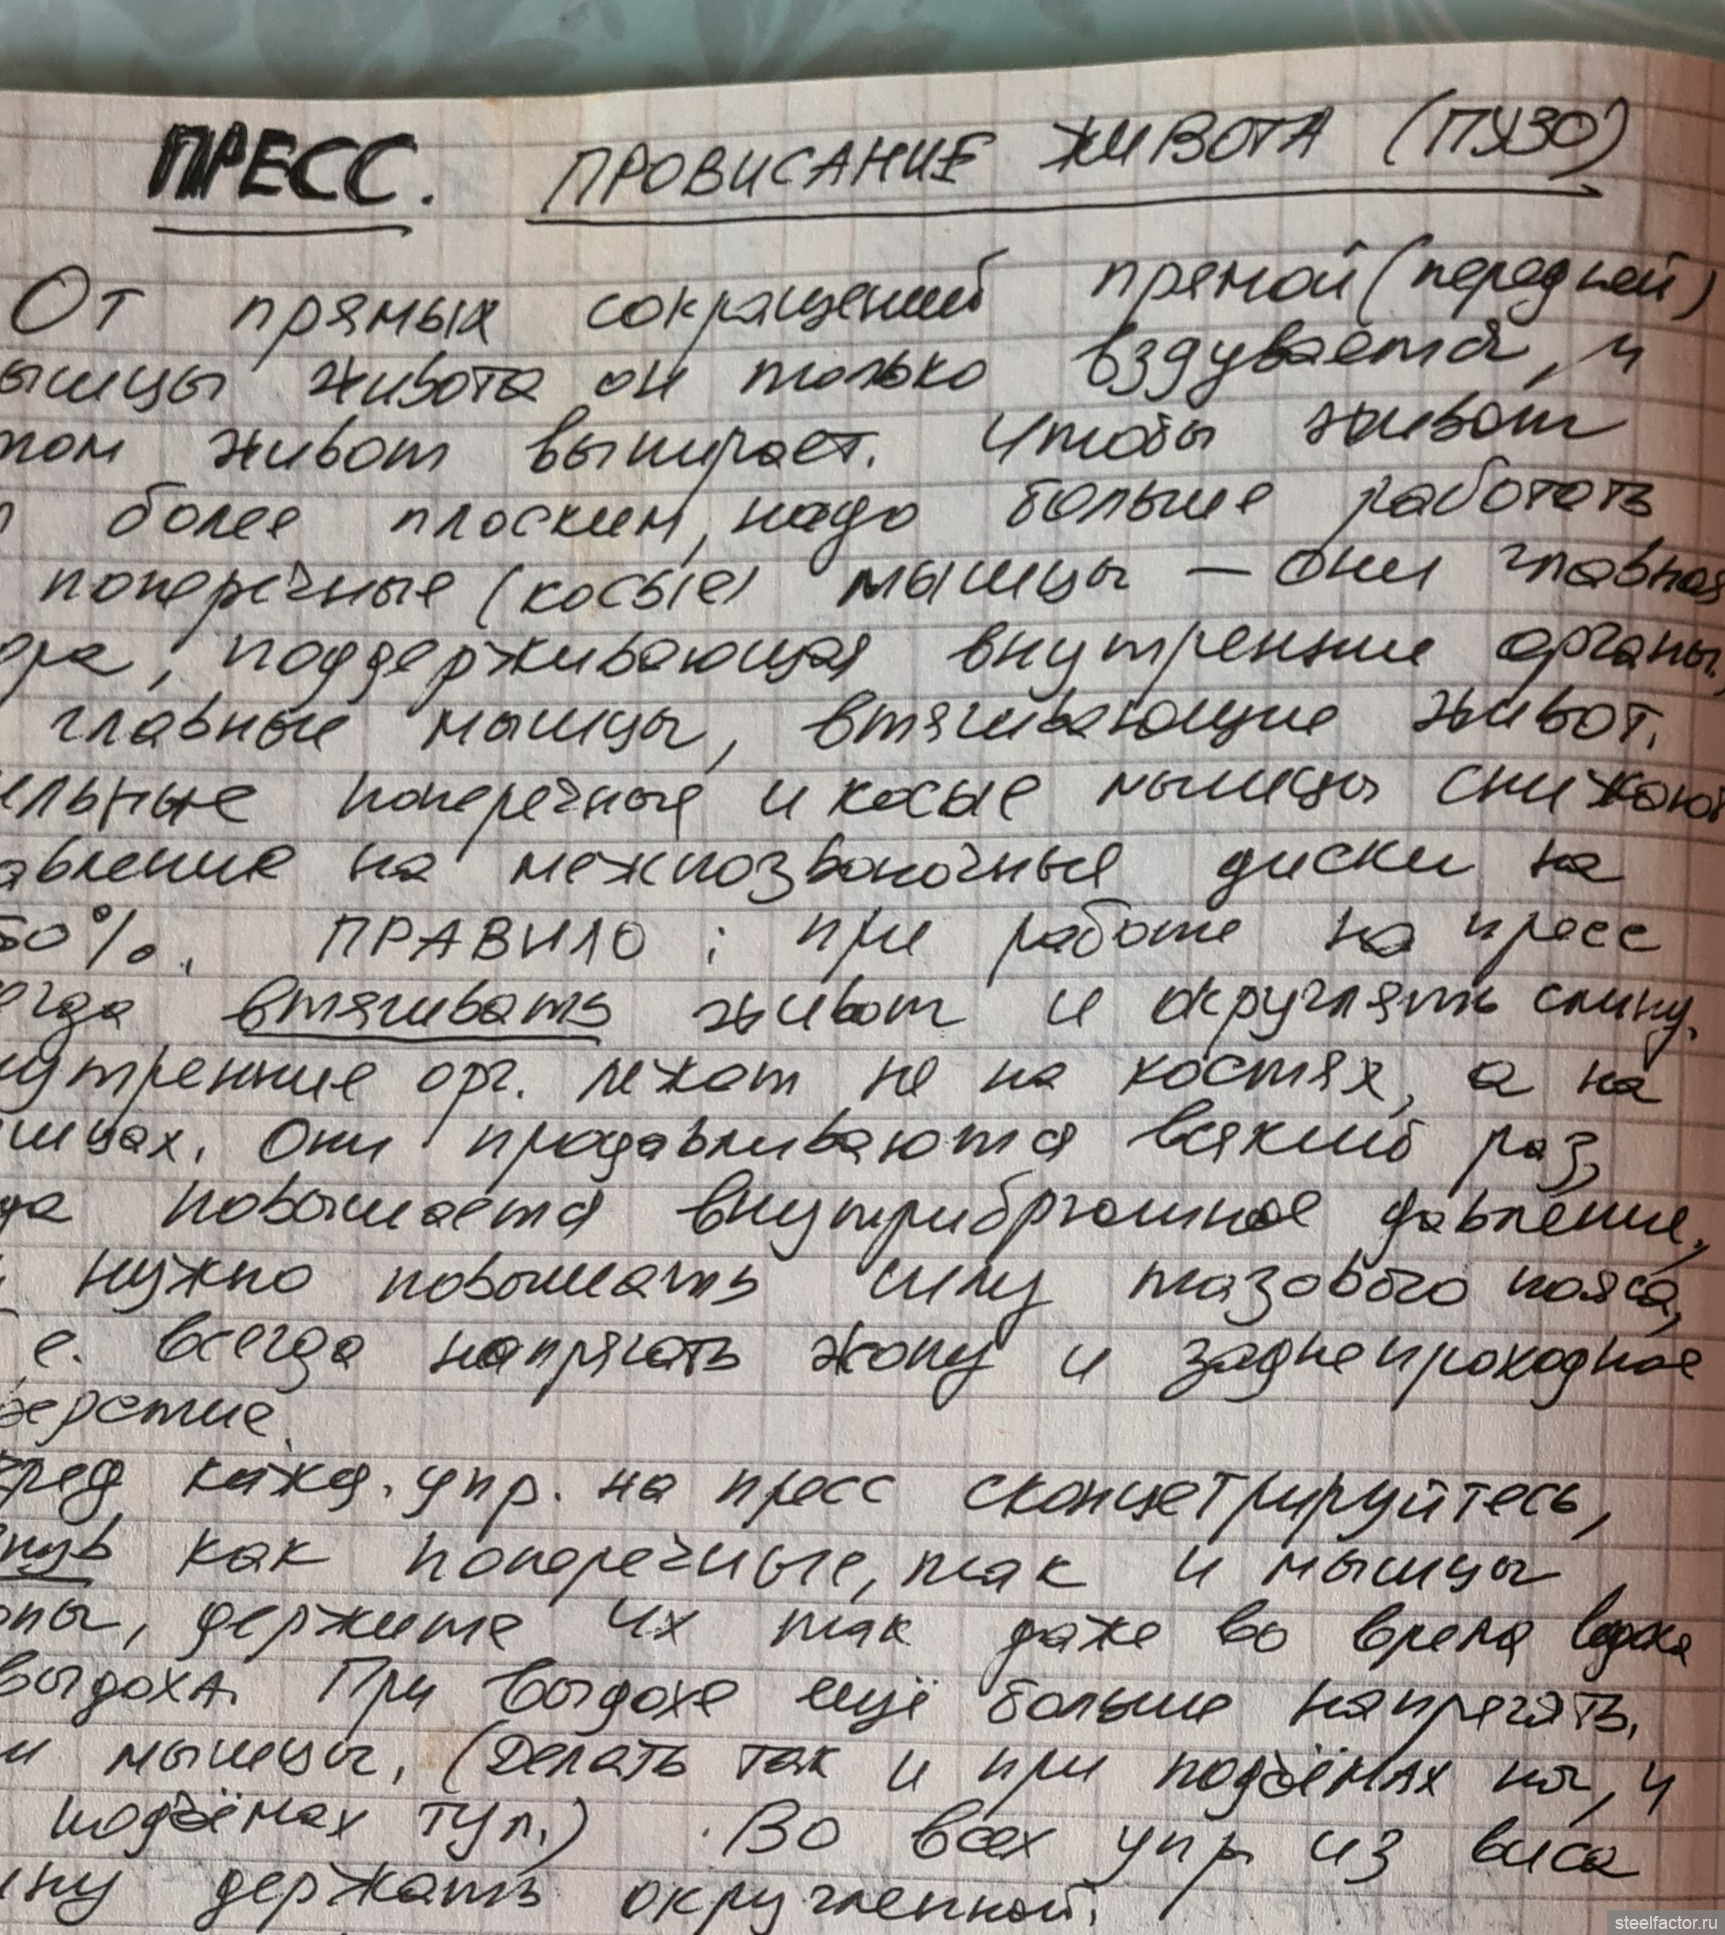 ПРЕСС. ПРОВИСАНИЕ ЖИВОТА (ПУЗО)
От прямых сокращений прямой (передней)
ышцы живота он только вздувается, и
том живот выпирает. Чтобы живот
более плоским, надо больше работать
поперечные (косые) мышцы — они главная
ора, поддерживающая внутренние органы,
главные мышцы, втягивающие живот.
ельные поперечные и косые мышцы снижают
авление на межпозвоночные диски на
50%. ПРАВИЛО: при работе на пресс
егда втягивать живот и округлять спину.
утренние орг. лежат не на костях, а на
шцах. Они продавливаются всякий раз,
да повышается внутрибрюшное давление,
нужно повышать силу тазового пояса,
е. всегда напрягать жопу и заднепроходное
верстие.
еред кажд. упр. на пресс сконцетрируйтесь,
как поперечные, так и мышцы
опы, держите их так даже во время вдоха
выдоха. При выдохе ещё больше напрягать.
и мышцы. (Делать так и при подъёмах ног, и
подъёмах тул.) Во всех упр из виса
ину держать округленной.
steelfactor.ru